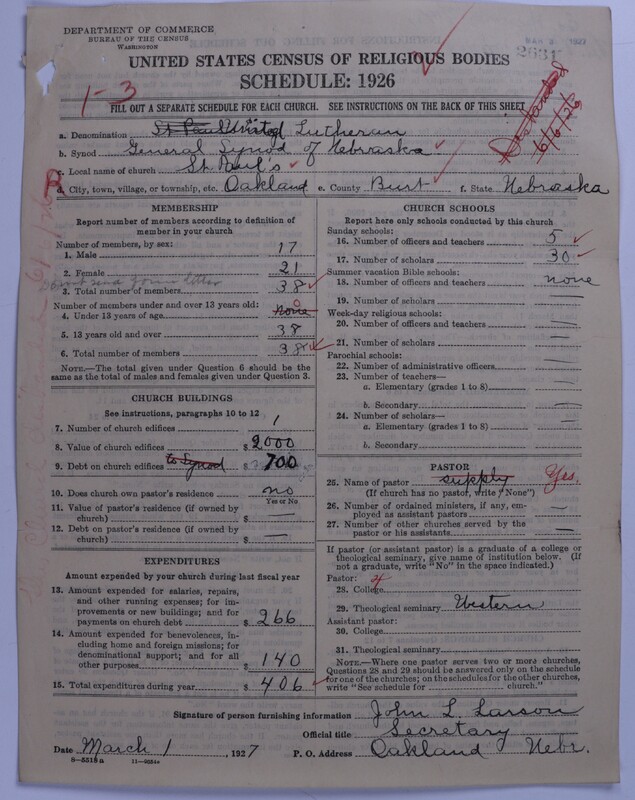 DEPARTMENT OF COMMERCE
BUREAU OF THE CENSUS
WASHINGTON
2631
UNITED STATES CENSUS OF RELIGIOUS BODIES
SCHEDULE: 1926
1-3
FILL OUT A SEPARATE SCHEDULE FOR EACH CHURCH. SEE INSTRUCTIONS ON THE BACK OF THIS SHEET
6/6/26
a. Denomination St Paul United Lutheran
b. Synod General Synod of Nebraska
c. Local name of church St. Paul's
d. City, town, village, or township, etc. Oakland e. County Burt f. State Nebraska
MEMBERSHIP
Report number of members according to definition of member in your church
Number of members, by sex:
1. Male 17
2. Female 21
3. Total number of members 38
Number of members under and over 13 years old:
4. Under 13 years of age none 0
5. 13 years old and over 38
6. Total number of members 38
NOTE.—The total given under Question 6 should be the same as the total of males and females given under Question 3.
CHURCH BUILDINGS
See instructions, paragraphs 10 to 12
7. Number of church edifices 1
8. Value of church edifices $ 2000
9. Debt on church edifices to Synod $ 700
10. Does church own pastor's residence no
Yes or No
11. Value of pastor's residence (if owned by church) $ —
12. Debt on pastor's residence (if owned by church) $ —
EXPENDITURES
Amount expended by your church during last fiscal year
13. Amount expended for salaries, repairs, and other running expenses; for improvements or new buildings; and for payments on church debt $ 266
14. Amount expended for benevolences, including home and foreign missions; for denominational support; and for all other purposes $ 140
15. Total expenditures during year $ 406
CHURCH SCHOOLS
Report here only schools conducted by this church
Sunday schools:
16. Number of officers and teachers 5
17. Number of scholars 30
Summer vacation Bible schools:
18. Number of officers and teachers none
19. Number of scholars —
Week-day religious schools:
20. Number of officers and teachers —
21. Number of scholars —
Parochial schools:
22. Number of administrative officers —
23. Number of teachers—
a. Elementary (grades 1 to 8) —
b. Secondary —
24. Number of scholars—
a. Elementary (grades 1 to 8) —
b. Secondary —
PASTOR
25. Name of pastor supply Yes.
(If church has no pastor, write "None")
26. Number of ordained ministers, if any, employed as assistant pastors —
27. Number of other churches served by the pastor or his assistants —
If pastor (or assistant pastor) is a graduate of a college or theological seminary, give name of institution below. (If not a graduate, write "No" in the space indicated.)
Pastor:
28. College
29. Theological seminary Western
Assistant pastor:
30. College
31. Theological seminary
NOTE.—Where one pastor serves two or more churches, Questions 28 and 29 should be answered only on the schedule for one of the churches; on the schedules for the other churches, write "See schedule for church."
Signature of person furnishing information John L. Larson
Official title Secretary
Date March 1, 1927 P. O. Address Oakland Nebr.
8—5518a 11—9554a